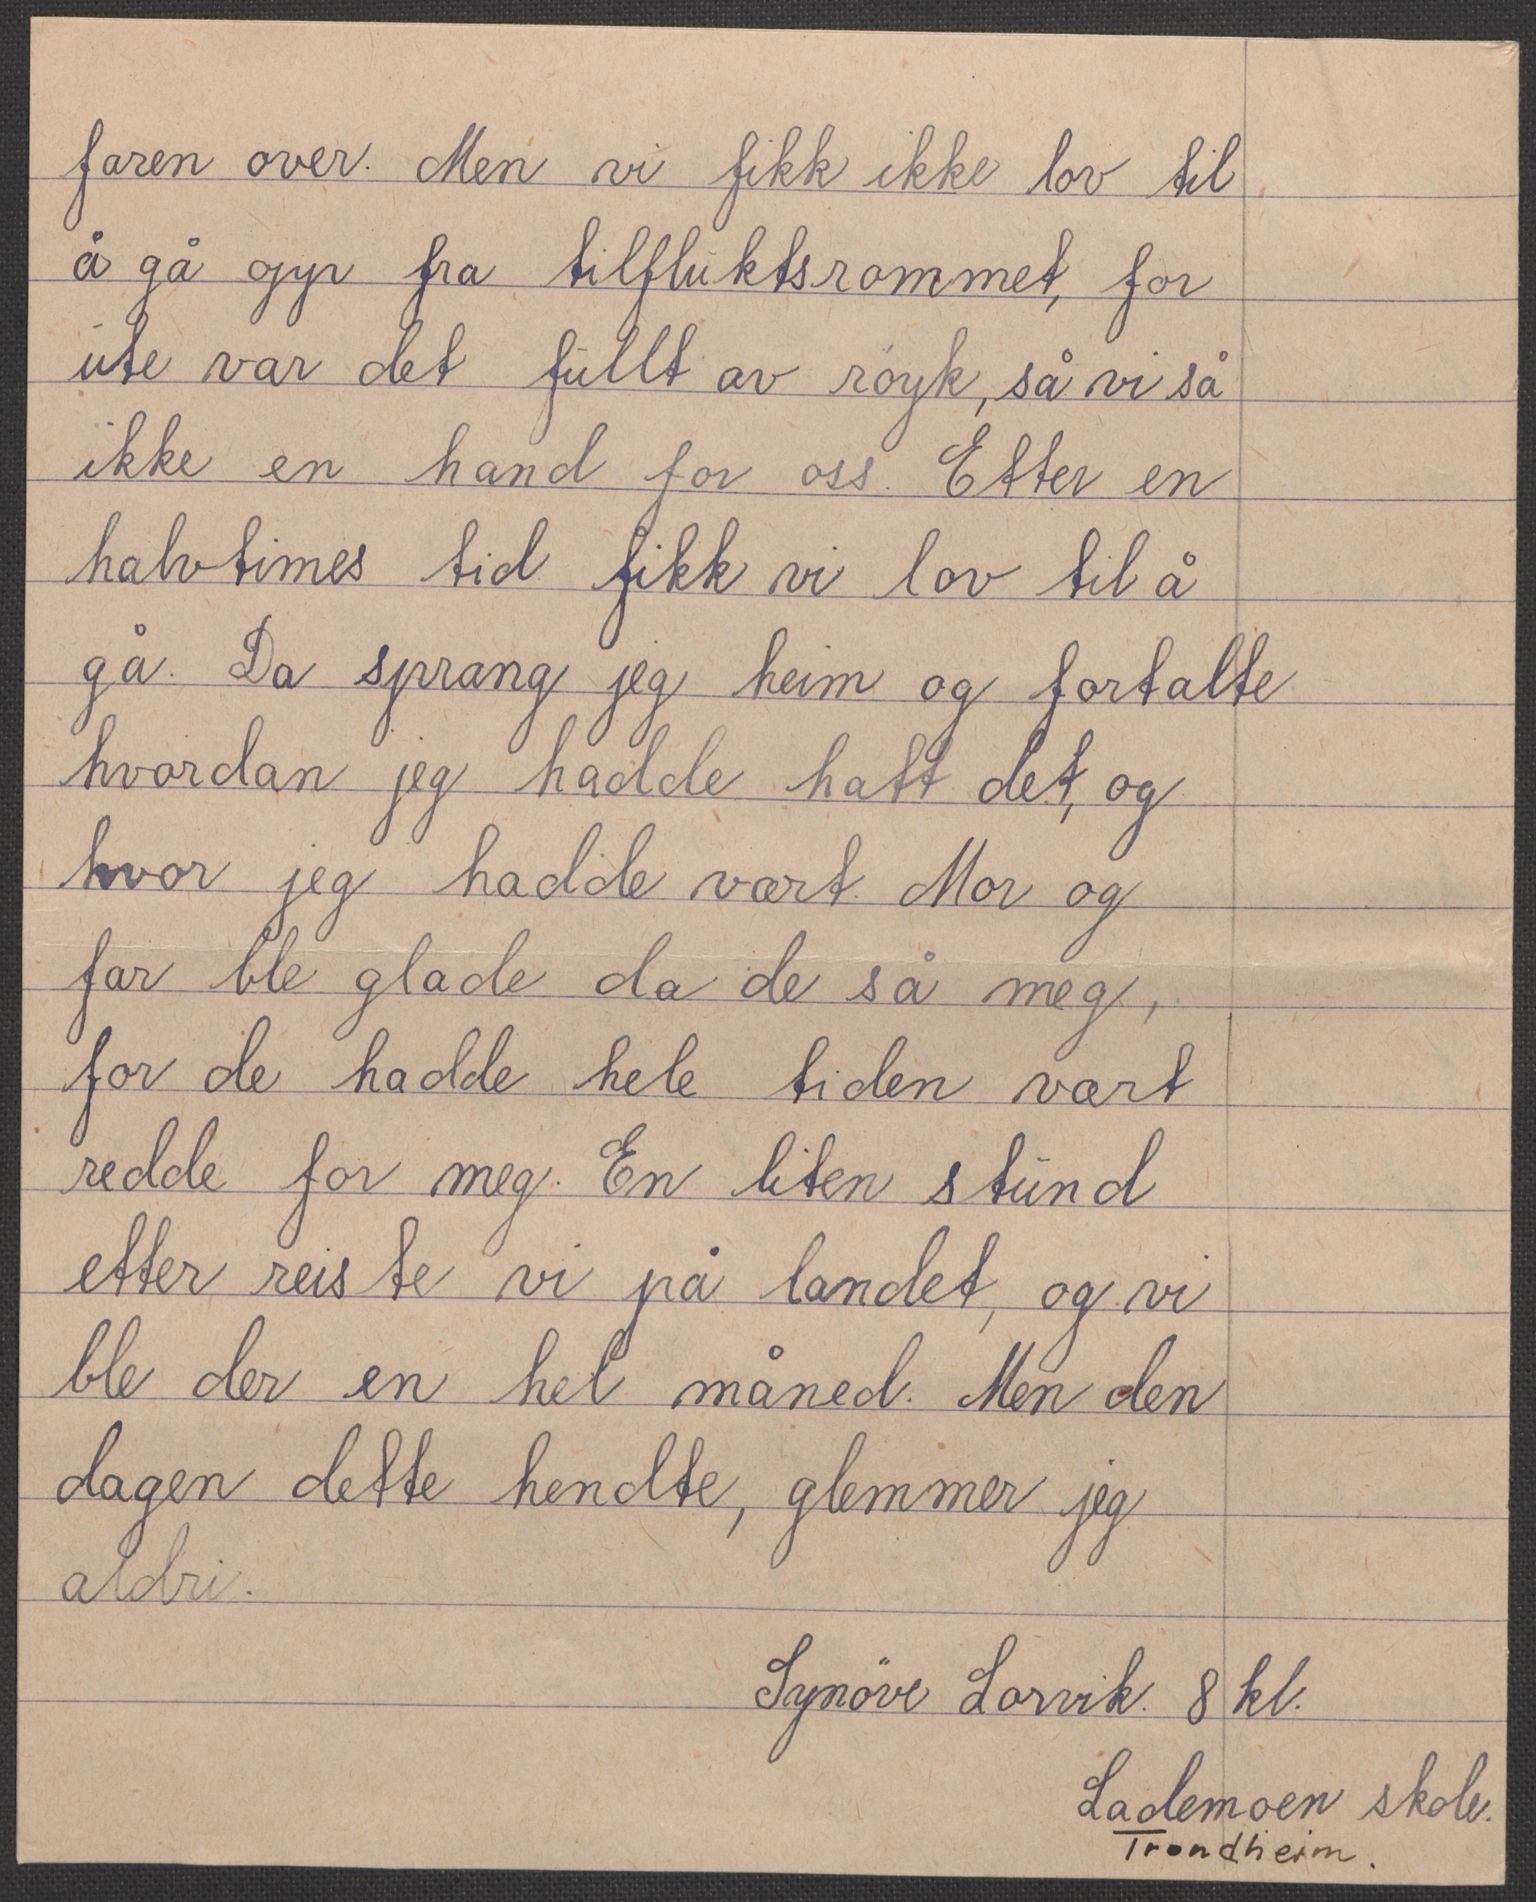 faren over. Men vi fikk ikke lov til
å gå opp fra tilfluktsrommet, for
ute var det fullt av røyk, så vi så
ikke en hand for oss. Etter en
halvtimes tid fikk vi lov til å
gå. Da sprang jeg heim og fortalte
hvordan jeg hadde hatt det, og
hvor jeg hadde vært. Mor og
far ble glade da de så meg,
for de hadde hele tiden vært
redde for meg. En liten stund
etter reiste vi på landet, og vi
ble der en hel måned. Men den
dagen dette hendte, glemmer jeg
aldri.
Synöve Lorvik. 8 kl.
Lademoen skole.
Trondheim.